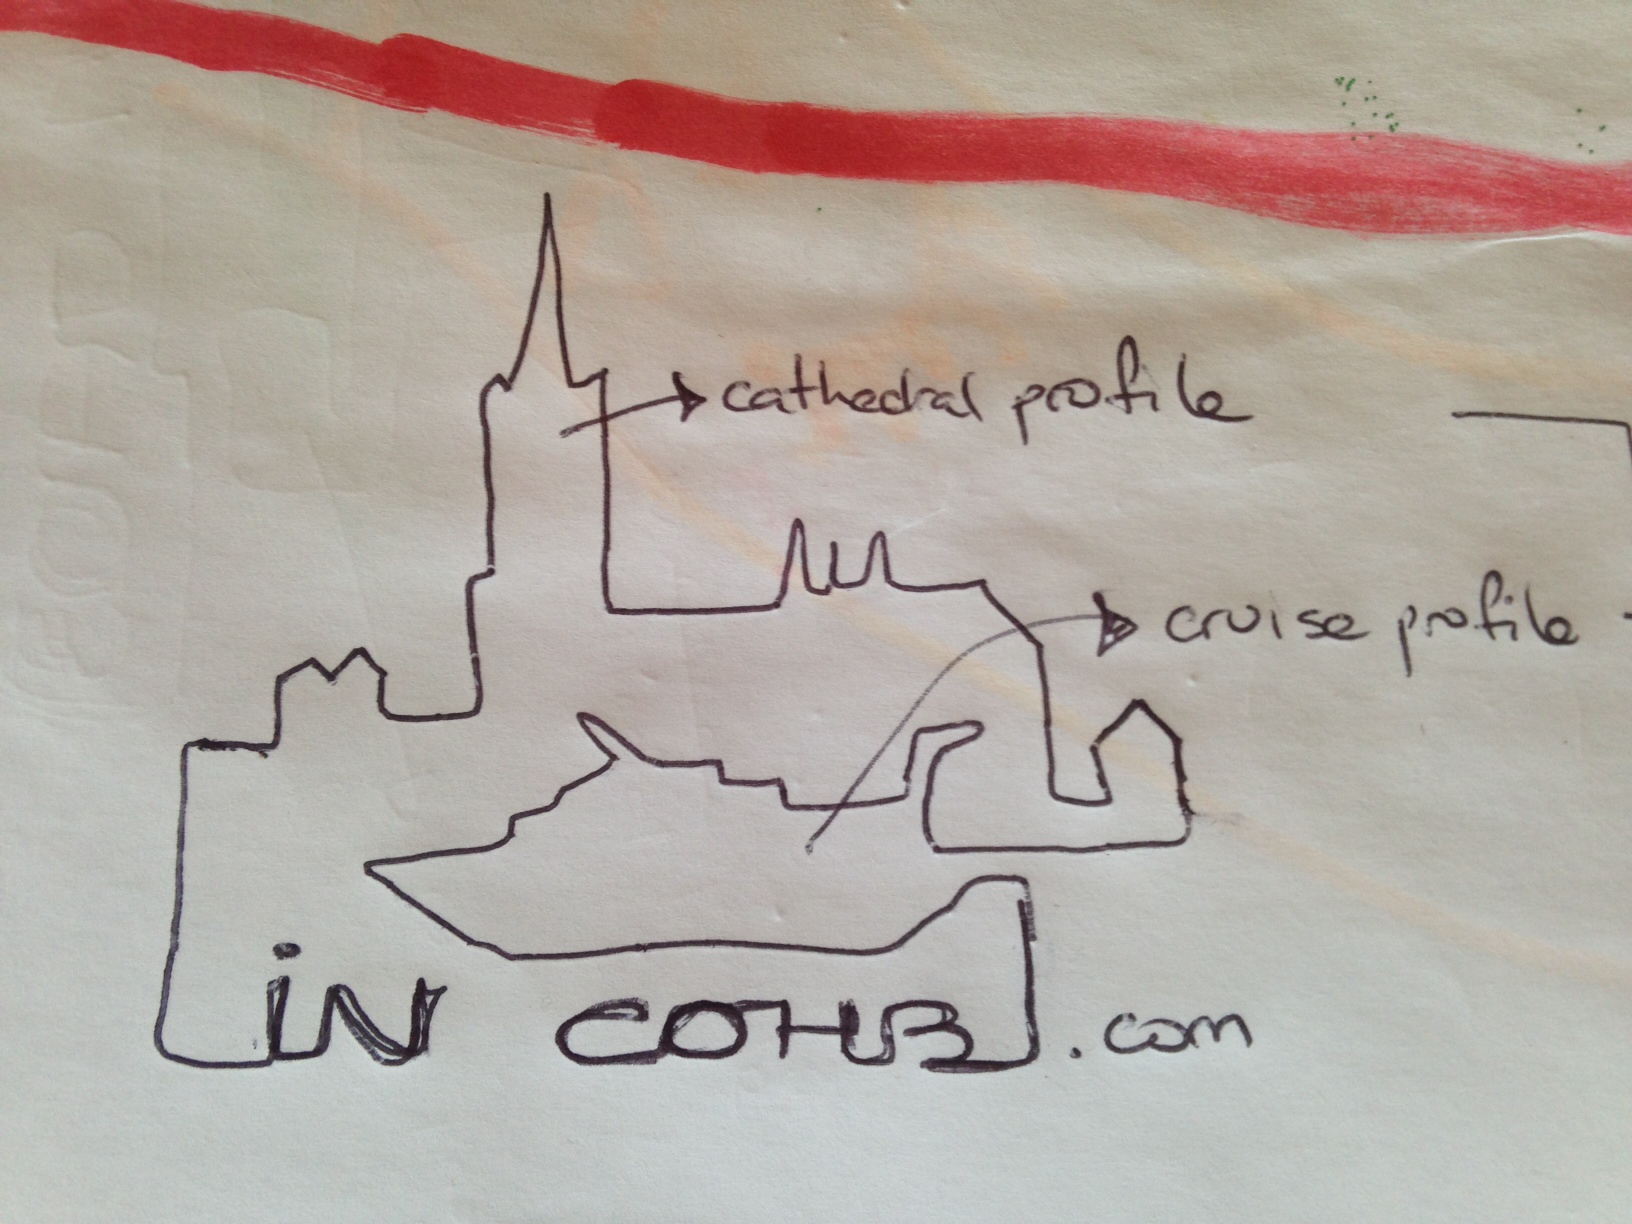 cathedral profile
cruise profile
iN COHB .com